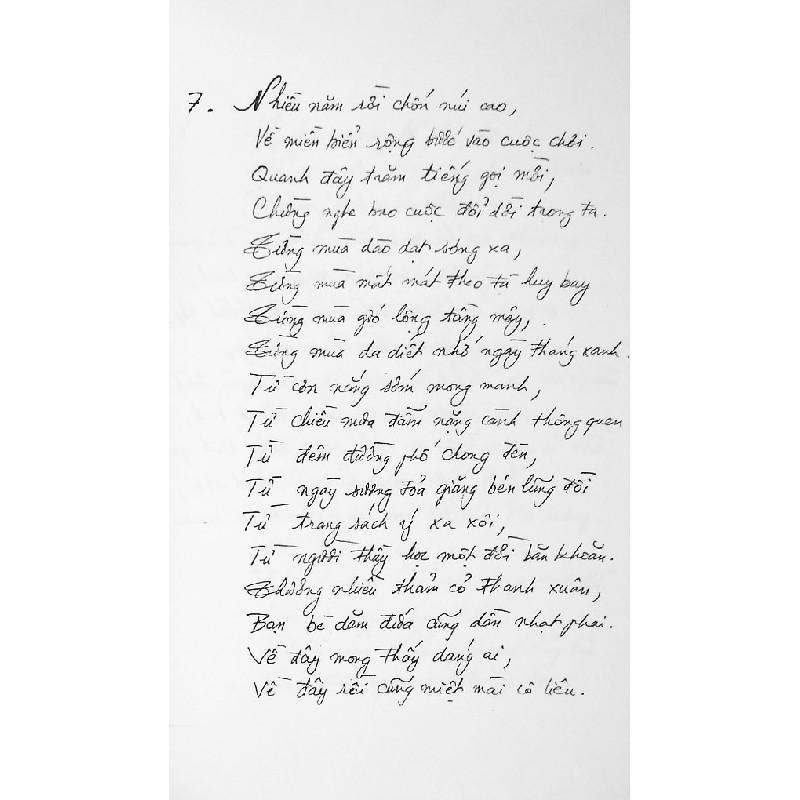 7. Nhiều năm rồi chốn núi cao,
Về miền biển rộng bước vào cuộc chơi.
Quanh đây trăm tiếng gọi mời,
Chừng nghe bao cuộc đổi dời trong ta.
Từng mùa dào dạt sóng xa,
Từng mùa mất mát theo tà huy bay
Từng mùa gió lộng tầng mây,
Từng mùa da diết nhớ ngày tháng xanh.
Từ cơn nắng sớm mong manh,
Từ chiều mưa đẫm nặng cành thông quen
Từ đêm đường phố chong đèn,
Từ ngày sương tỏa giăng bên lưng đồi
Từ trang sách ý xa xôi,
Từ người thầy học một đời băn khoăn.
Đường nhiều thảm cỏ thanh xuân,
Bạn bè dăm đứa cũng dần nhạt phai.
Về đây mong thấy dáng ai,
Về đây rồi cũng miệt mài cô liêu.